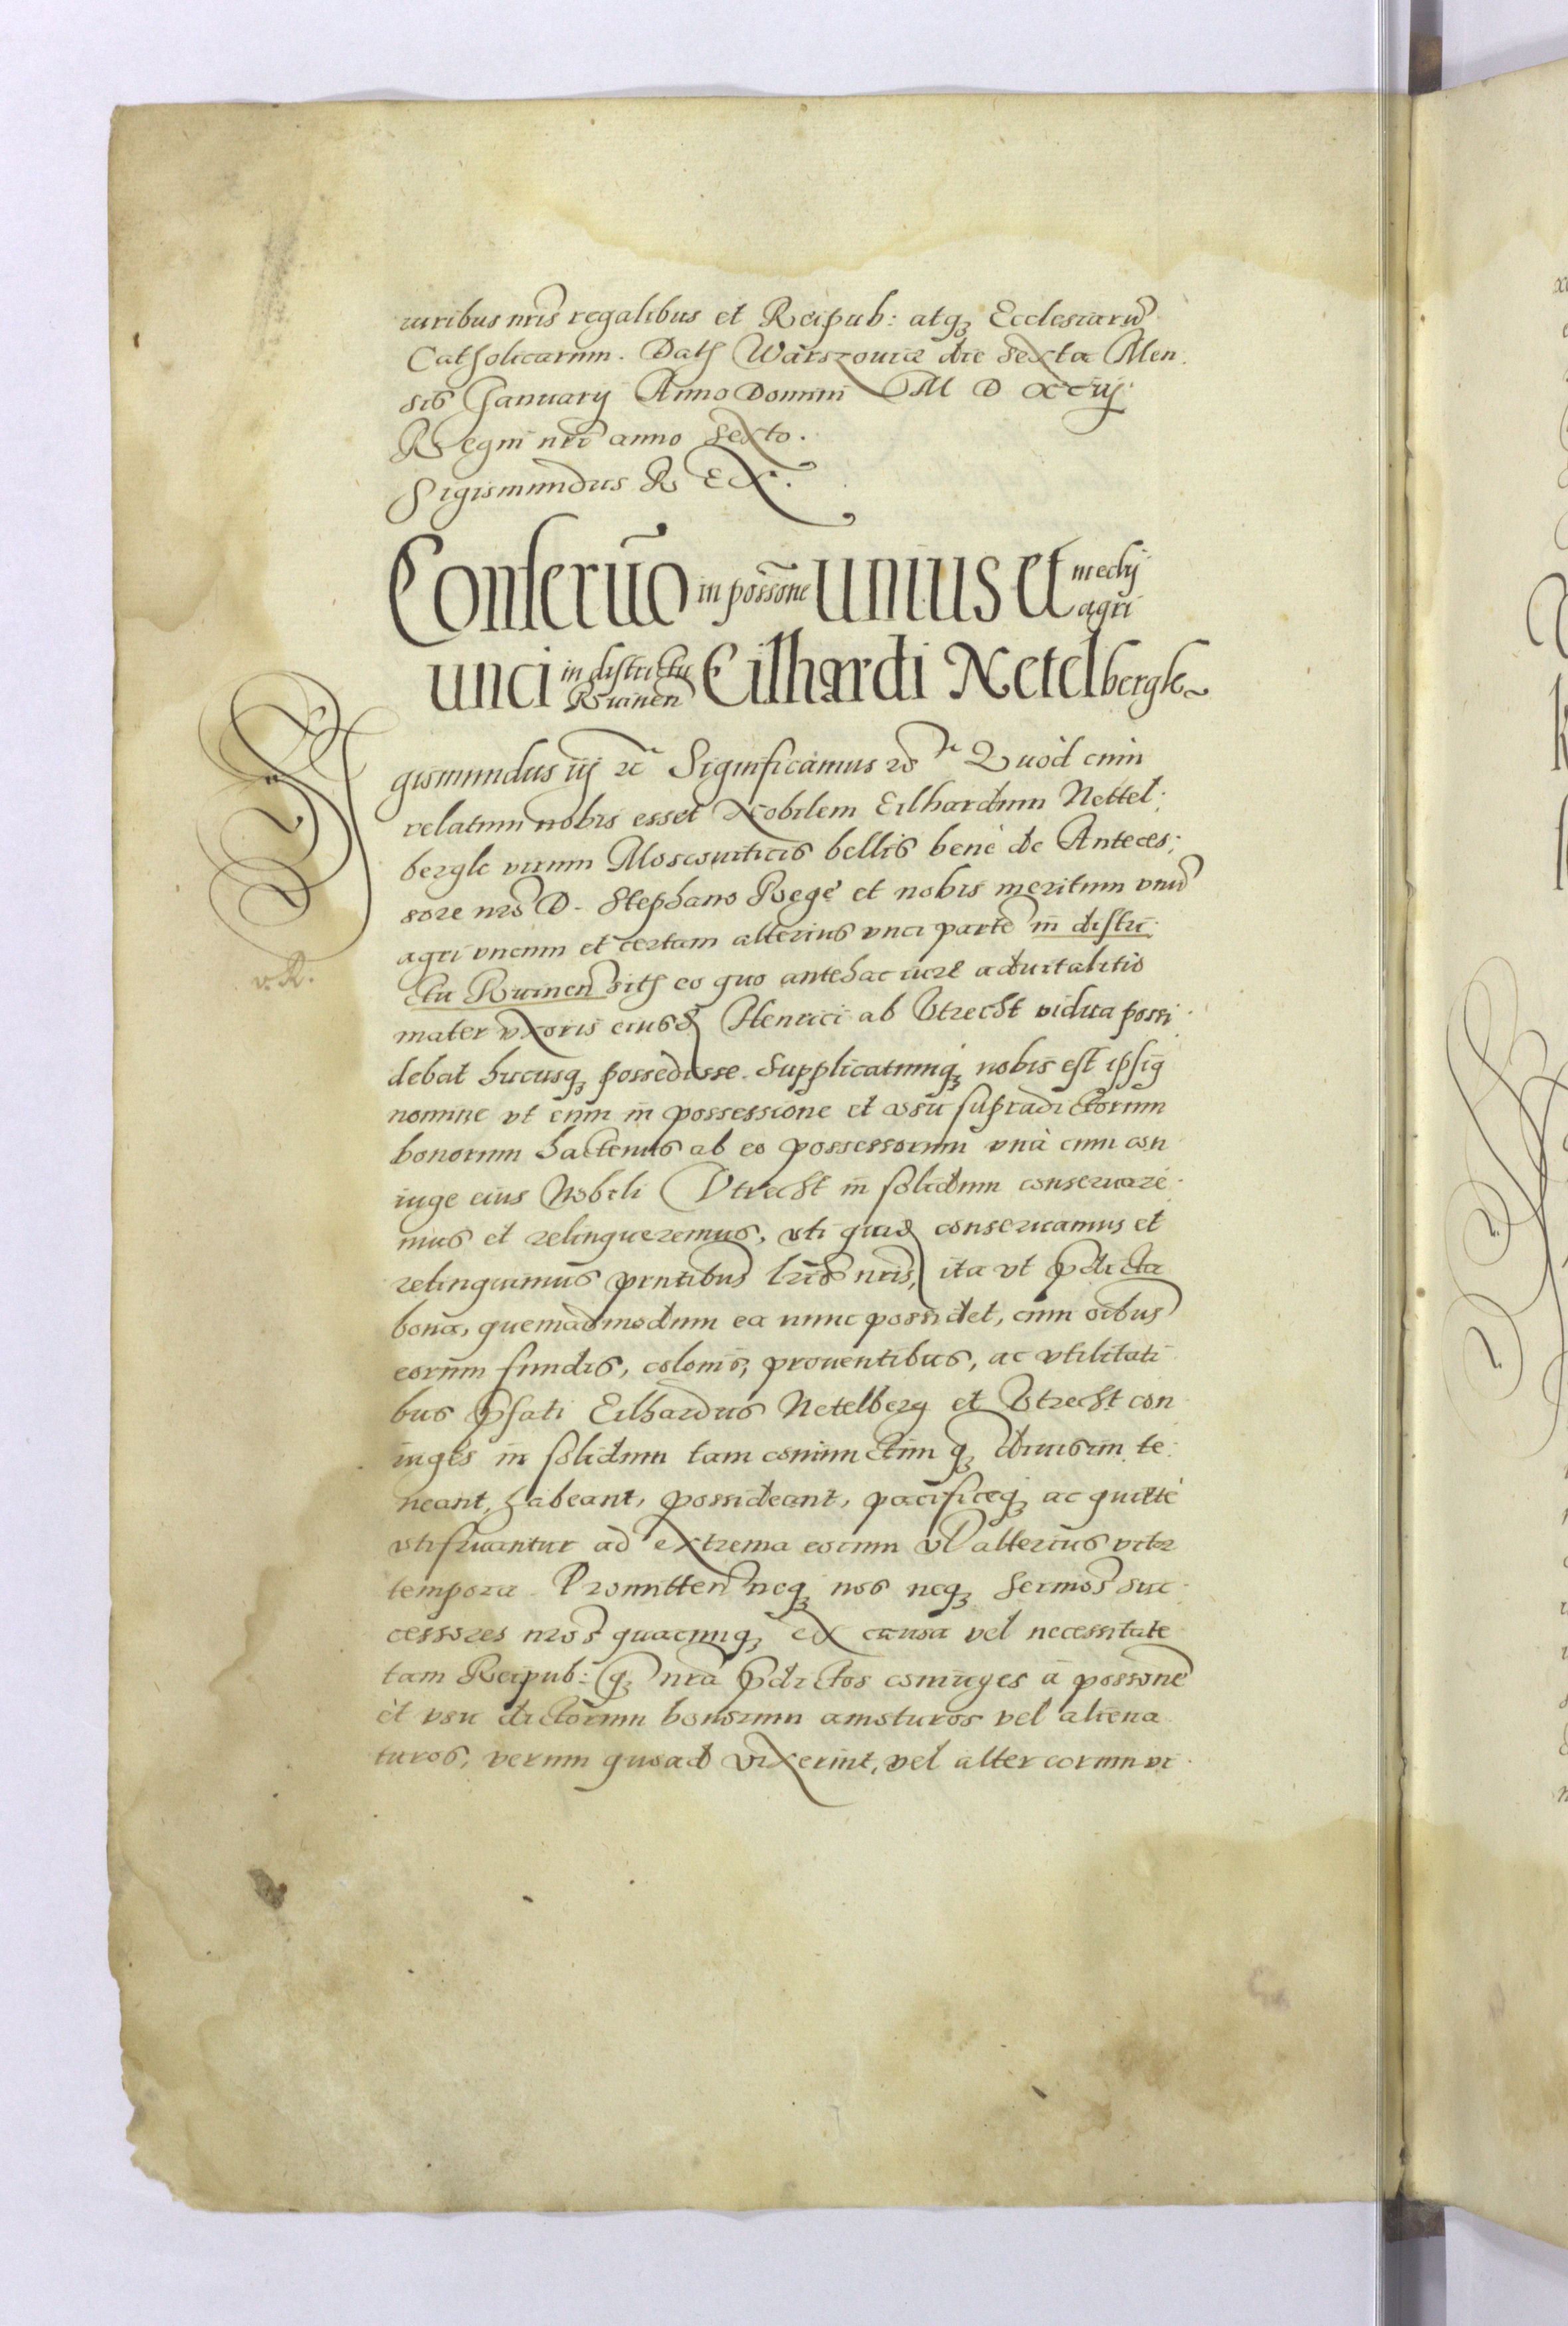 iuribus nr̃is regalibus et Reipub: atq₃ Ecclesiarũ
Catholicarum. Dat̃ Warszouiæ die sexta Men
sis Januarij Anno Domini M D XCIIj
Regni nr̃i anno sexto.
Sigismundus REX.
Conseruõ in possõne unius et medij agri
unci in districtu Ruinen̄ Eilhardi Netelbergk
Sigismundus iij ꝛc̃ Significamus ꝛc̃ Quòd cum
relatum nobis esset Nobilem Eilhardum Nettel:
bergk virum Moscouiticis bellis benè de Anteces:
sore nr̃o D. Stephano Rege et nobis meritum vnũ
agri vncum et certam alterius vnci partẽ in distri:
v. R.
ctu Ruinen̄ sit̃ eo quo antehac iure aduitalitio
mater vxoris eiusd̃ Henrici ab Vtrecht vidua possi
debat hucusq₃ possedisse. Supplicatumq₃ nobis est ipsiꝰ
nomine vt eum in possessione et vsu supradictorum
bonorum hactenus ab eo possessorum vnà cum con
iuge eius Nobili Vtrecht in solidum conseruare:
mus et relinqueremus, vti quid̃ conseruamus et
relinquimus pr̃ntibus lr̃is nr̃is, ita vt p̃dicta
bona, quemadmodum ea nunc possidet, cum oĩbus
eorum fundis, colonis, prouentibus, ac vtilitati
bus p̃fati Eilhardus Netelberg et Vtrecht con
iuges in solidum tam coniunctim q₃ diuisim te:
neant, habeant, possideant, pacificeq₃ ac quietè
vtifruantur ad extrema eorum vl̃ alterius vitæ
tempora. Promitten̄ neq₃ nos neq₃ Sermõs suc:
cessores nr̃os quacunq₃ ex causa vel necessitate
tam Reipub: q₃ nr̃a p̃dictos coniuges à possõne
et vsu dictorum bonorum amoturos vel aliena
turos, verum quoad vixerint, vel alter eorum vi